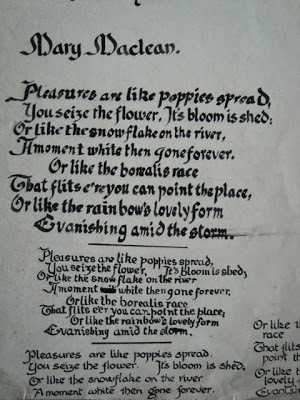 Mary Maclean.
Pleasures are like poppies spread,
You seize the flower, It's bloom is shed;
Or like the snow flake on the river,
A moment white then gone forever.
Or like the borealis race
That flits e're you can point the place,
Or like the rainbow's lovely form
Evanishing amid the storm.
Pleasures are like poppies spread,
You seize the flower, It's bloom is shed;
Or like the snow flake on the river
A moment white then gone forever.
Or like the borealis race
That flits e'er you can point the place;
Or like the rainbow's lovely form
Evanishing amid the storm.
Pleasures are like poppies spread.
You seize the flower. It's bloom is shed.
Or like the snowflake on the river
A moment white then gone forever.
Or like
race
That flits
point th
Or like th
Evanish